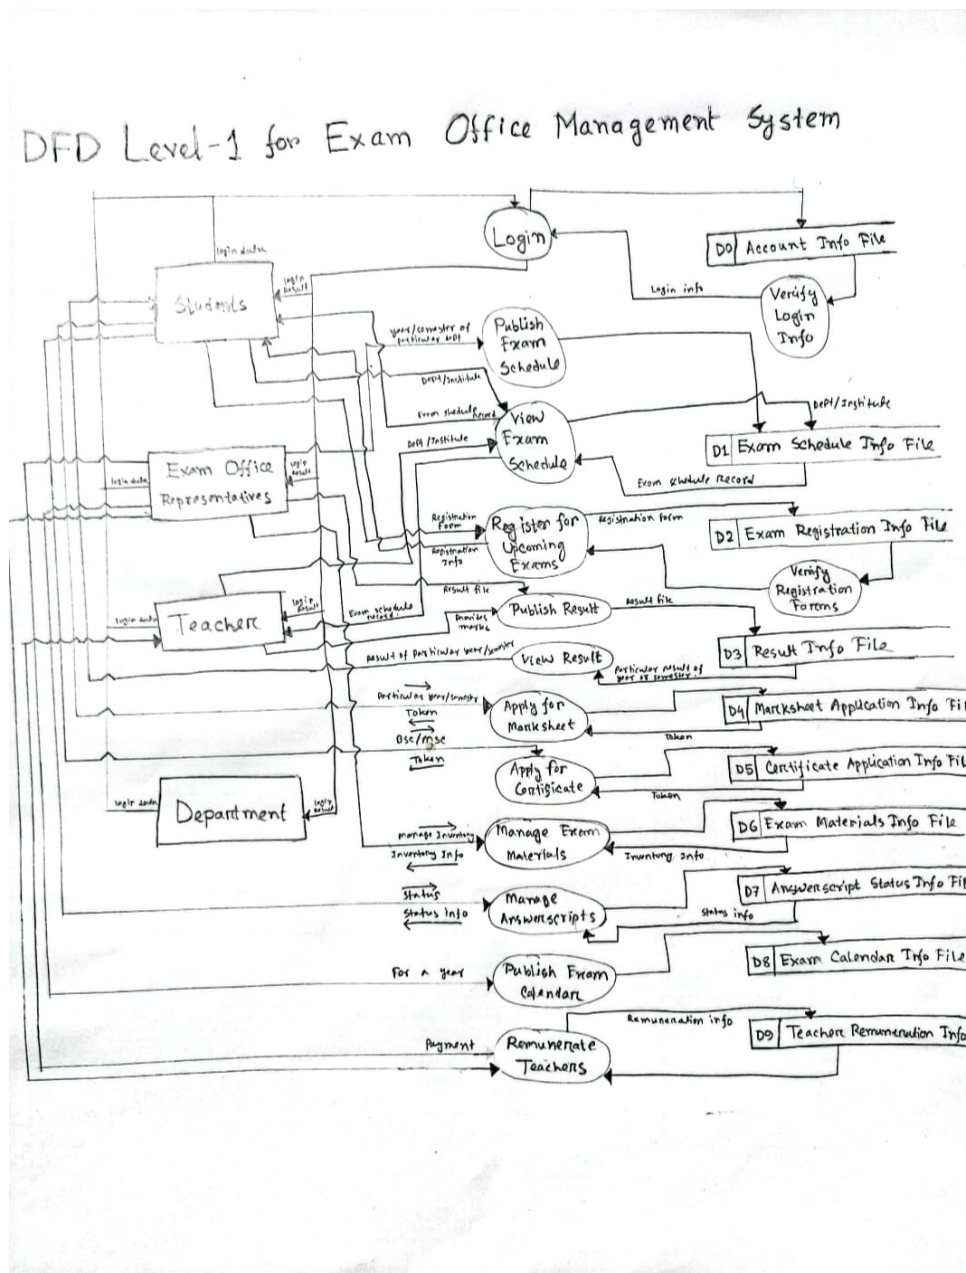 DFD Level-1 for Exam Office Management System
Login
D0 Account Info File
login data
Students
login
Result
Login info
Verify
Login
Info
year/semester of
particular
Publish
Exam
Schedule
Dept/Institute
Exam shedule record
View
Exam
Schedule
Dept/Institute
Dept/Institute
D1 Exam Schedule Info File
Exam shedule Record
Exam Office
Representatives
login data
login
Result
Registration
Form
Registration
Info
Register for
Upcoming
Exams
Registration form
D2 Exam Registration Info File
Verify
Registration
Forms
Result file
Publish Result
Result file
login data
Teacher
login
Result
Exam schedule
record
Provides
marks
D3 Result Info File
Result of Particular year/semster
View Result
Particular result of
year or semester
Particular year/semster
Token
Apply for
Marksheet
D4 Marksheet Application Info Fi
Token
Bsc/msc
Token
Apply for
Certificate
D5 Certificate Application Info Fil
Token
login data
Department
login
Result
Manage Inventory
Inventory Info
Manage Exam
Materials
D6 Exam Materials Info File
Inventory Info
Status
Status info
Manage
Answerscripts
D7 Answerscript Status Info Fi
Status info
For a year
Publish Exam
Calendar
D8 Exam Calendar Info File
Payment
Remunerate
Teachers
Remuneration info
D9 Teacher Remuneration Info